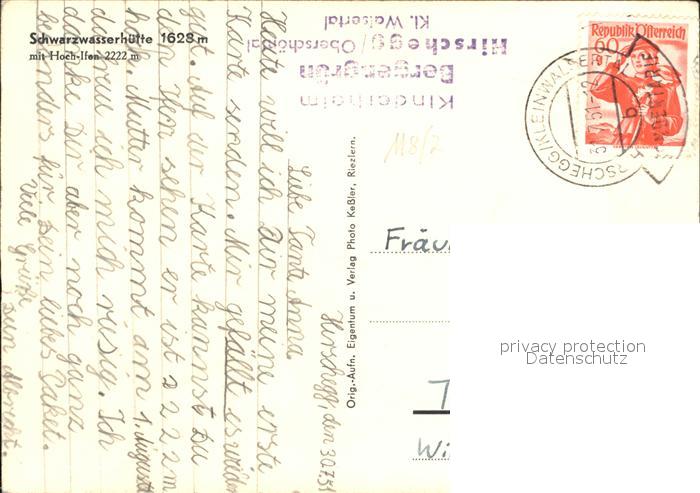 Schwarzwasserhütte 1628 m
mit Hoch-Ifen 2222 m
Kinderheim
Bergengrün
Hirschegg/Oberschöntal
Kl. Walsertal
Republik Österreich
60
HIRSCHEGG/KLEINWALSERTAL
118/2
Hirschegg, den 30.7.51
Liebe Tante Anna
Heute will ich dir meine erste
Karte senden. Mir gefällt es
ge. Auf der Karte kannst Du
den Ifen sehen er ist 2222 m
hoch. Mutter kommt am 1. August
da freu ich mich riesig. Ich
danke Dir aber noch ganz
besonders für Dein liebes Paket.
Viele Grüße
Dein Albrecht.
Orig.-Aufn. Eigentum u. Verlag Photo Keßler, Riezlern.
Fräu
privacy protection
Datenschutz